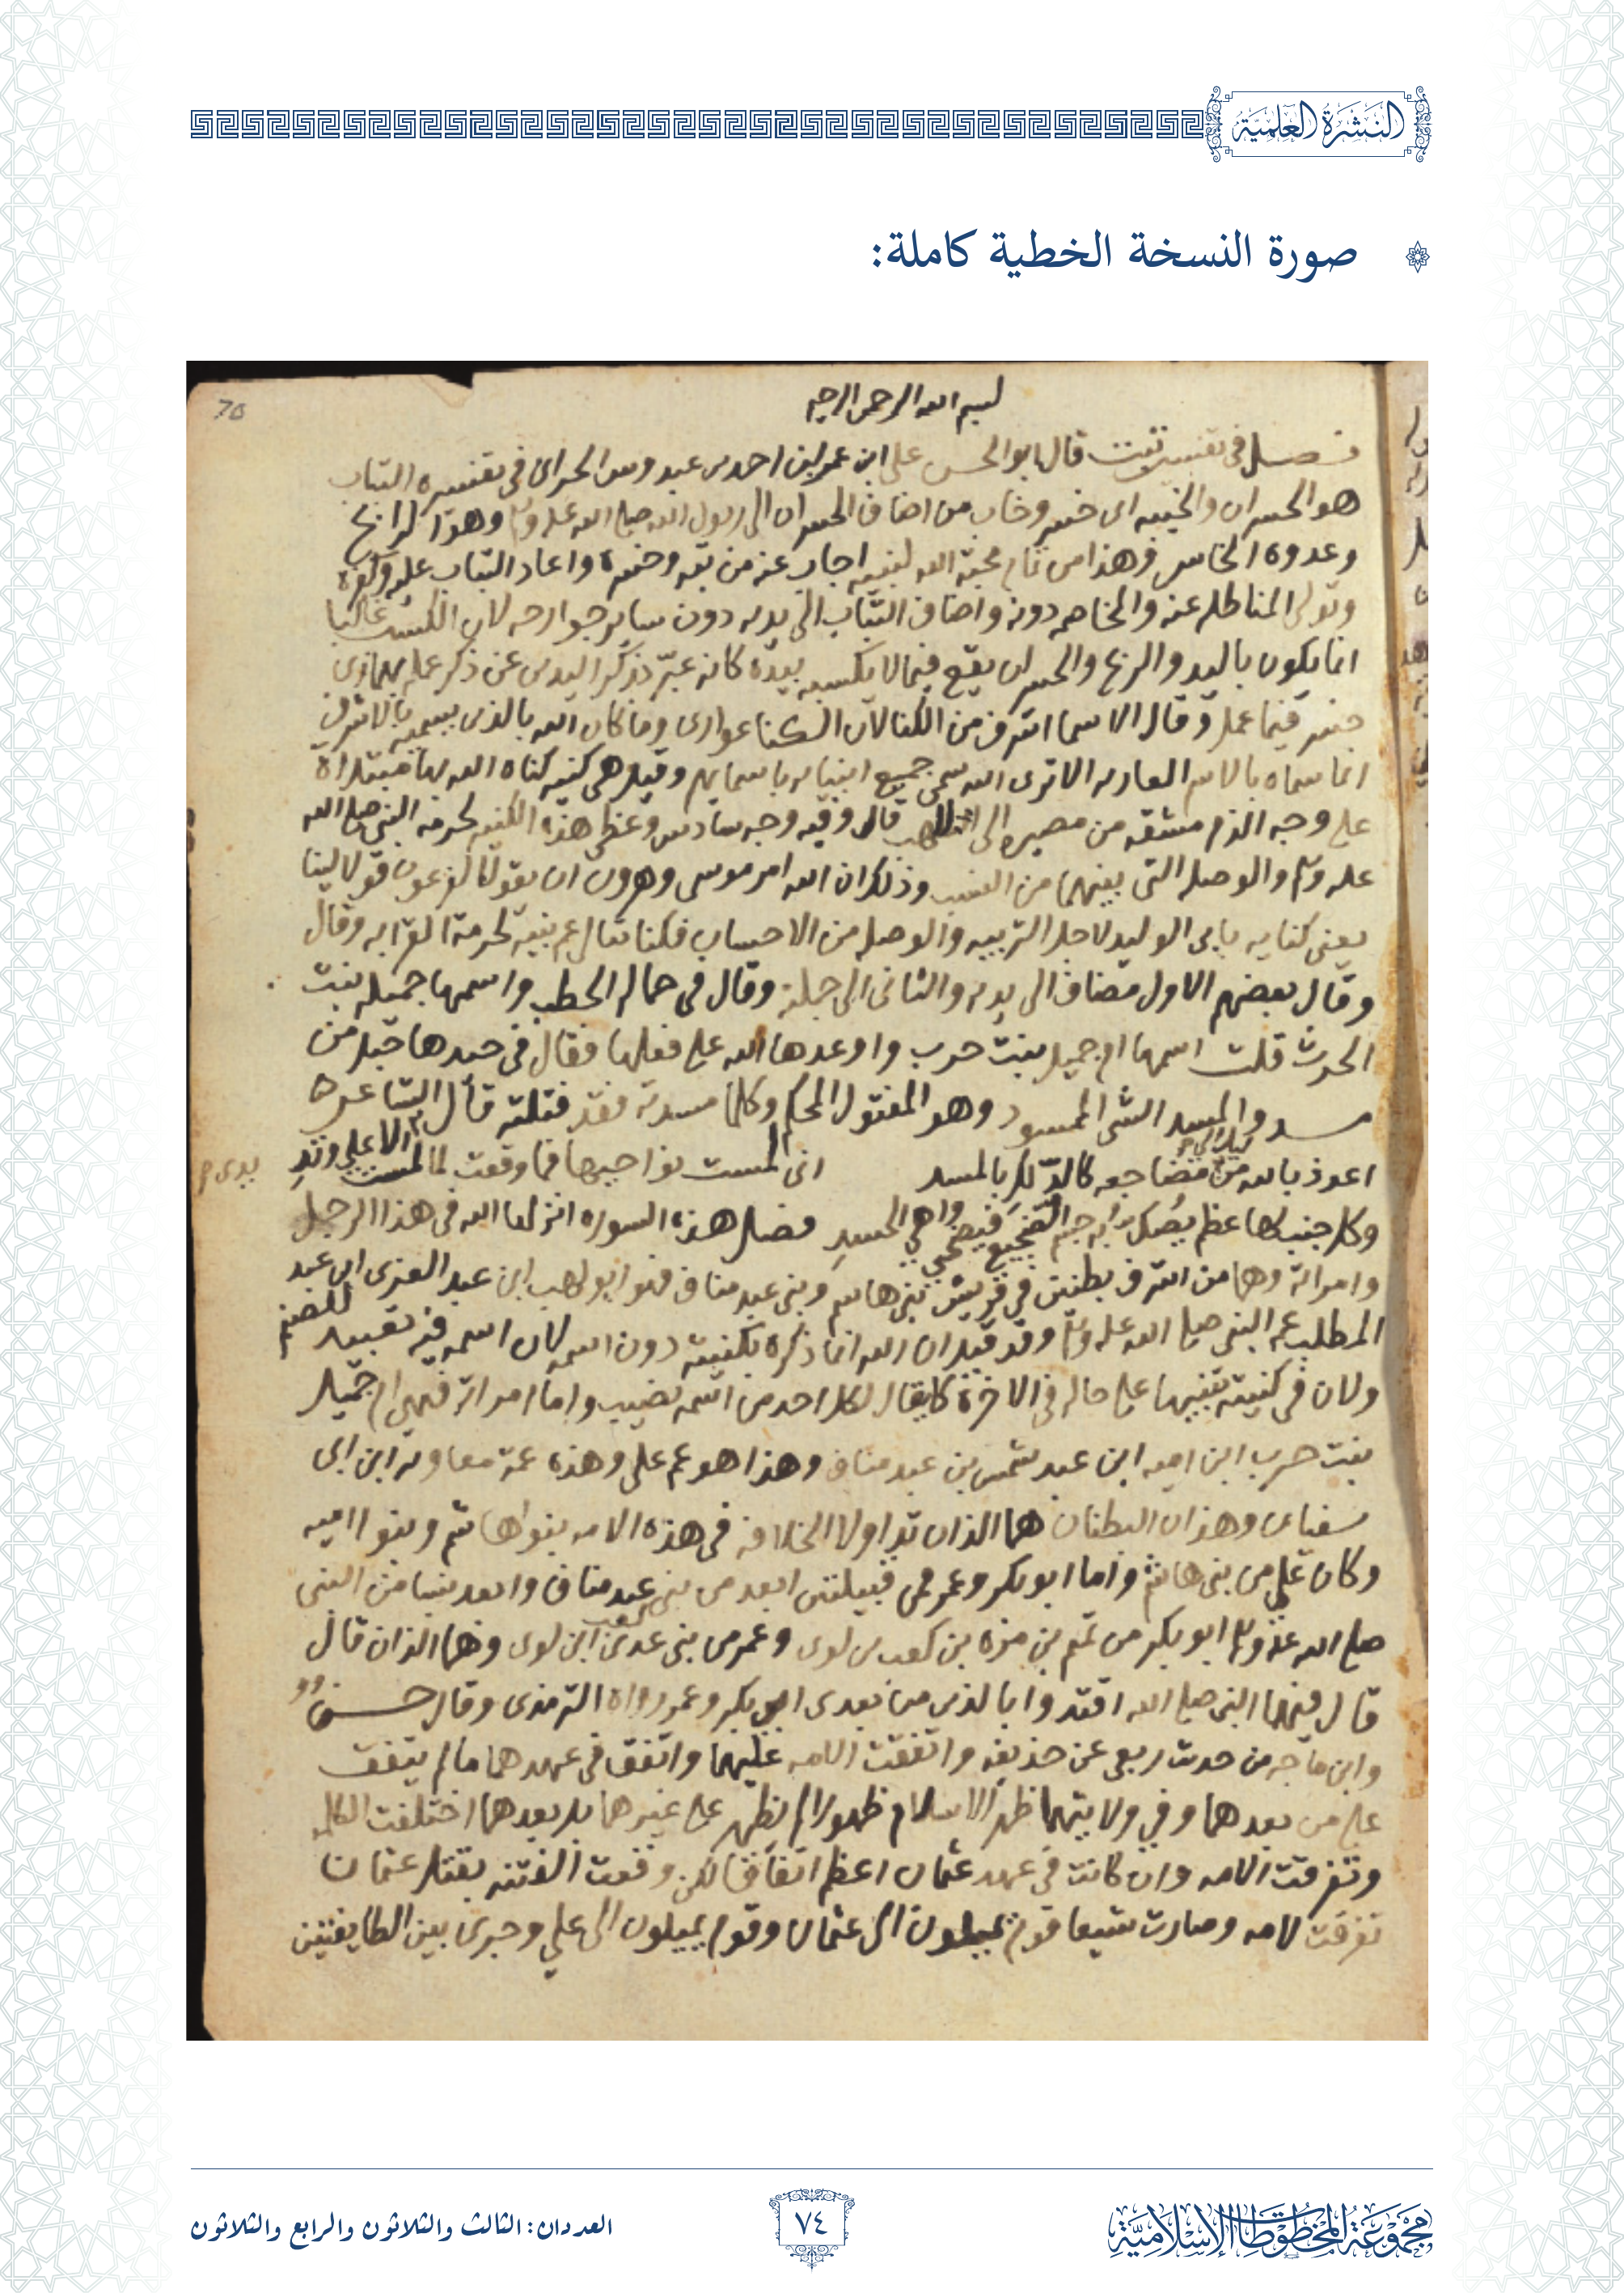 النشرة العلمية
صورة النسخة الخطية كاملة:
70
بسم الله الرحمن الرحيم
فصل في تفسير تبت قال ابو الحسن على ابن عمر ابن احمد بن عبدوس الحراى فى تفسيره التباب
هو الخسران والخيبه اى خسر وخاب من اضاف الخسران الى رسول الله صلى الله عليه وسلم وهو الرابح
وعدوه الخاسر فهذا من محبة الله لنبيه اجاب عنه من وخسره واعاد التباب عليه
وتولى المناضله عنه والمخاصمه دونه واضاف التباب الى يديه دون ساير جوارحه لان الكسب غالبا
انما يكون باليد والربح والخسران يقع فيما لا يكسبه بيده كانه عبر بذكر اليدين عن ذكر عمله
خسر فيما عمل وقال الاسما اشرف من الكنا لان الكنا عوارى وما كان الله بالذى يسميه بالاشرف
انما سماه بالاسم العاريه الا ترى الله سمى جميع انبيايه باسمايهم وقيل هى كنيه كناه الله بها مبتداة
على وجه الذم مشتقه من مصيره الى اللهب قال وفيه وجه سادس وعظم هذه الكنيه لحرمة النبي صلى الله
عليه وسلم والوصله التى بينهما من النسب وذلك ان الله امر موسى وهرون ان يقولا لفرعون قولا لينا
يعنى كناية بابى الوليد لاجل التربيه والوصله من الاحساب فكنا تعالى عم نبيه لحرمة القرابه وقال
وقال بعضهم الاول مضاف الى يديه والثانى الى جملته وقال فى حمالة الحطب واسمها جميله بنت
الحرث قلت اسمها ام جميل بنت حرب واوعدها الله على فعلها فقال فى جيدها حبل من
مسد والمسد الشى الممسود وهو المفتول المحكم وكلما مسدته فقد فتلته قال الشاعر
اعوذ بالله من مضاجعه كالدلك بالمسد انى لمست نواحيها فما وقعت لما لمست الا على وتد
يدى
وكل جنب لها عظم يصك به جسم الضجيع فيضحى واهي الجسد فصل هذه السوره انزلها الله فى هذا الرجل
وامراته وهما من اشرف بطنين في قريش بنى هاشم وبنى عبد مناف فهو ابو لهب ابن عبد العزى ابن عبد
المطلب عم النبي صلى الله عليه وسلم وقد قيل ان الله انما ذكره بكنيته دون اسمه لان اسمه فيه تعبيد للصنم
ولان في كنيته تنبيها على حاله فى الاخرة كما يقال لكل احد من اسمه نصيب واما امراته فهى ام جميل
بنت حرب ابن اميه ابن عبد شمس بن عبد مناف وهذا هو عم على وهذه عمة معاويه ابن ابى
سفيان وهذان البطنان هما الذان تداولا الخلافه فى هذه الامه بنوا هاشم وبنوا اميه
وكان علي من بنى هاشم واما ابو بكر وعمر فمن قبيلتين ابعد من بنى عبد مناف وابعد نسبا من النبى
صلى الله عليه وسلم ابو بكر من تيم بن مره بن كعب بن لوى وعمر من بنى عدى بن كعب ابن لوى وهما الذان قال
قال فيهما النبى صلى الله اقتدوا بالذين من بعدى ابو بكر وعمر رواه الترمذى وقال حسن
وابن ماجه من حديث ربعى عن حذيفه واتفقت الامه عليهما واتفق في عهدهما ما لم يتفق
على من بعدهما وفي ولايتهما ظهر الاسلام ظهورا لم يظهر على غيرهما بل بعدهما اختلفت الكلمه
وتفرقت الامه وان كانت في عهد عثمان اعظم اتفاقا لكن وقعت الفتنه بقتل عثمان
تفرقت لامه وصارت شيعا قوم يميلون الى عثمان وقوم يميلون الى علي وجرى بين الطايفتين
مجموعة المخطوطات الإسلامية
٧٤
العددان: الثالث والثلاثون والرابع والثلاثون